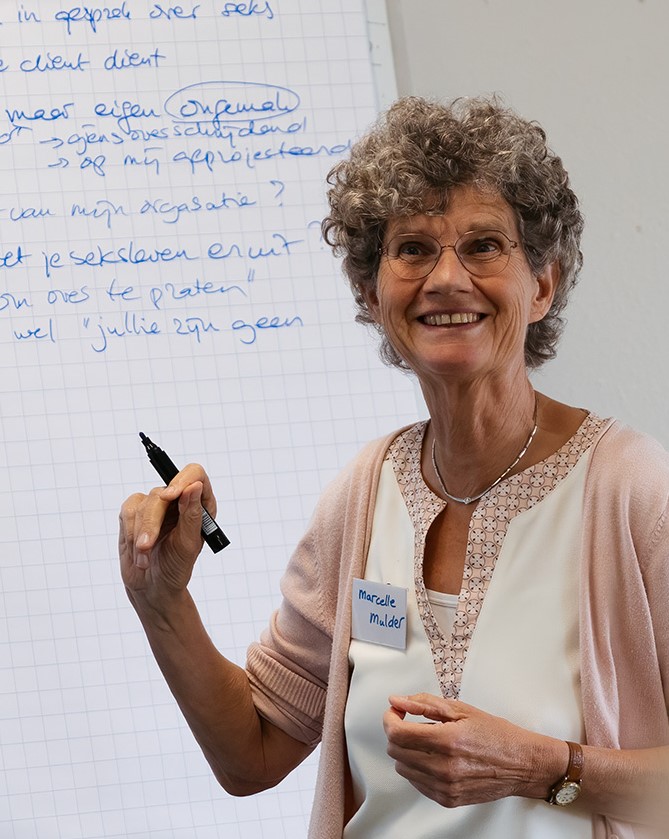 in gesprek over seks
client dient
maar eigen ongemak
→ grensoverschrijdend
→ op mij geprojecteerd
van mijn orgasatie?
je seksleven eruit?
om over te praten"
wel "jullie zijn geen
Marcelle
Mulder